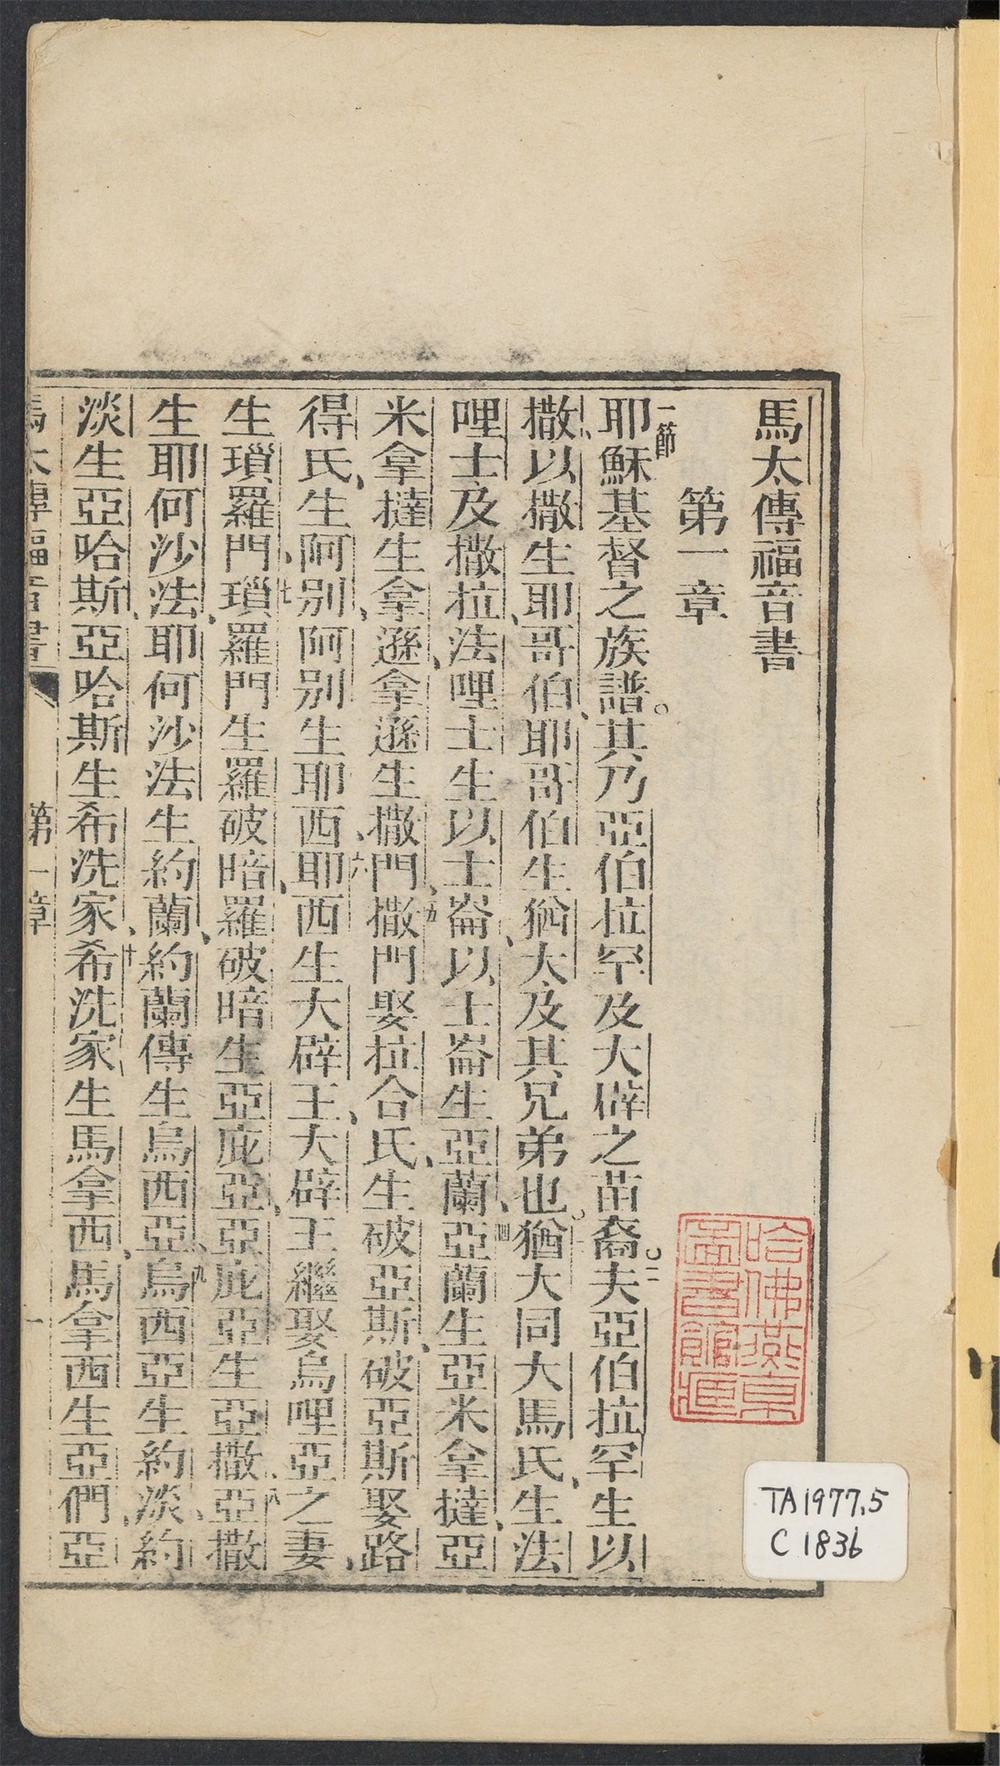 馬太傳福音書
第一章
一節耶穌基督之族譜。其乃亞伯拉罕及大辟之苗裔。二夫亞伯拉罕生以
撒、以撒生耶哥伯、耶哥伯生猶大及其兄弟也。三猶大同大馬氏、生法
哩士及撒拉、法哩士生以士崙、以士崙生亞蘭、四亞蘭生亞米拿撻、亞
米拿撻生拿遜、拿遜生撒門、五撒門娶拉合氏、生破亞斯、破亞斯娶路
得氏、生阿别、阿别生耶西、六耶西生大辟王、大辟王繼娶烏哩亞之妻、
生瑣羅門、七瑣羅門生羅破暗、羅破暗生亞庇亞、亞庇亞生亞撒、八亞撒
生耶何沙法、耶何沙法生約蘭、約蘭傳生烏西亞、九烏西亞生約淡、約
淡生亞哈斯、亞哈斯生希洗家、十希洗家生馬拿西、馬拿西生亞們、亞
馬太傳福音書 第一章 一
哈佛燕京圖書館藏
TA1977.5
C1836